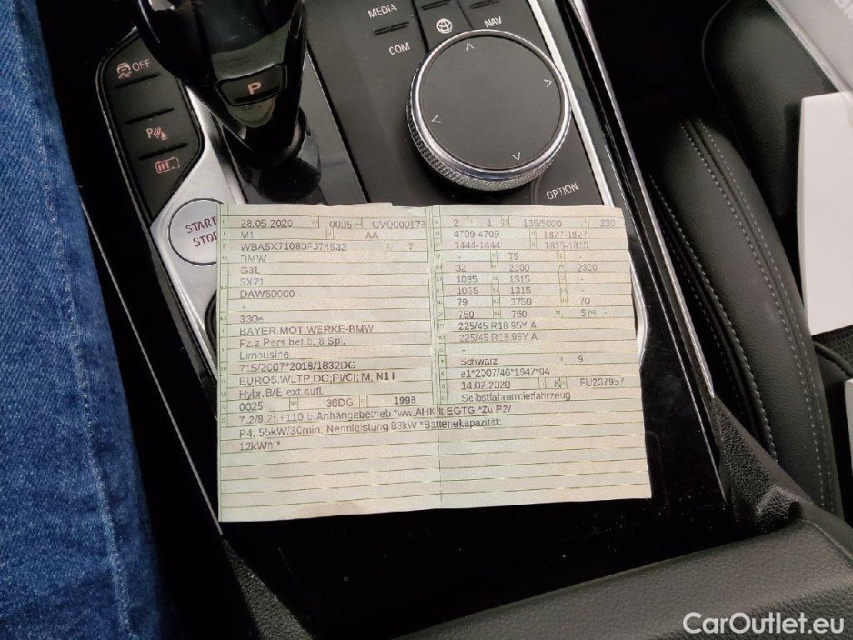 MEDIA
NAV
COM
OFF
P
OPTION
START
28.05.2020 0005 2 1 230
M1 AA 4709-4709 1827-1827
7 1444-1444 1815-1815
BMW - 75 -
G3L 32 2300 2300
5X71 1035 1315 -
DAW50000 1035 1315 -
- 79 3750 70
330e 750 750
BAYER.MOT.WERKE-BMW 225/45 R18 95Y A
Fz.z.Pers.bef.b. 8 Spl. 225/45 R18 95Y A
Limousine
715/2007*2018/1832DG Schwarz 9
EURO6,WLTP e1*2007/46*1947*04
Hybr.B/E ext.aufl. 14.02.2020 K
0025 36DG 1998 Selbstfahrermietfahrzeug
b.Anhängebetrieb *ww.AHK lt.EGTG *Zu P.2/
P4, 55kW/30min, Nennleistung 83kW *Batteriekapazität:
12kWh *
CarOutlet.eu